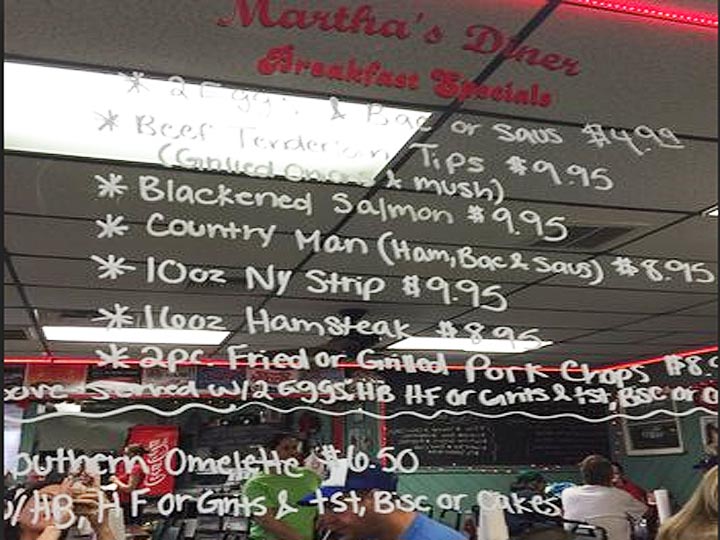 Martha's Diner
Breakfast Specials
* 2 Eggs & Bac or Saus $4.99
* Beef Tenderloin Tips $9.95
(Grilled Onions & mush)
* Blackened Salmon $9.95
* Country Man (Ham, Bac & Saus) $8.95
* 10oz Ny Strip $9.95
* 16oz Hamsteak $8.95
* 2pc. Fried or Grilled Pork Chops $8.9
ove Served w/2 Eggs, HB HF or Grits & tst, Bsc or
outhern Omelette $6.50
w/HB, HF or Grits & tst, Bisc or Cakes
Coca-Cola